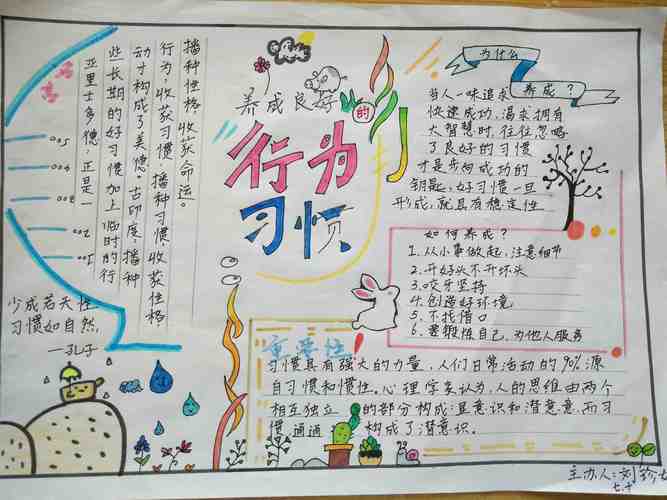 养成良好的
行为
习惯
亚里士多德:正是一
些长期的好习惯加上临时的行
动才构成了美德。古印度:播种
行为,收获习惯,播种习惯,收获性格
播种性格,收获命运。
少成若天性
习惯如自然
—孔子
为什么
养成?
当人一味追求
快速成功,渴求拥有
大智慧时,往往忽略
了良好的习惯
才是步向成功的
钥匙,好习惯一旦
形成,就具有稳定性
如何养成?
1.从小事做起,注意细节
2.开好头不开坏头
3.咬牙坚持
4.创造好环境
5.不找借口
6.要锻炼自己,为他人服务
重要性
习惯具有强大的力量,人们日常活动的90%源
自习惯和惯性。心理学家认为,人的思维由两个
相互独立的部分构成:显意识和潜意意,而习
惯通通构成了潜意识。
主办人:刘